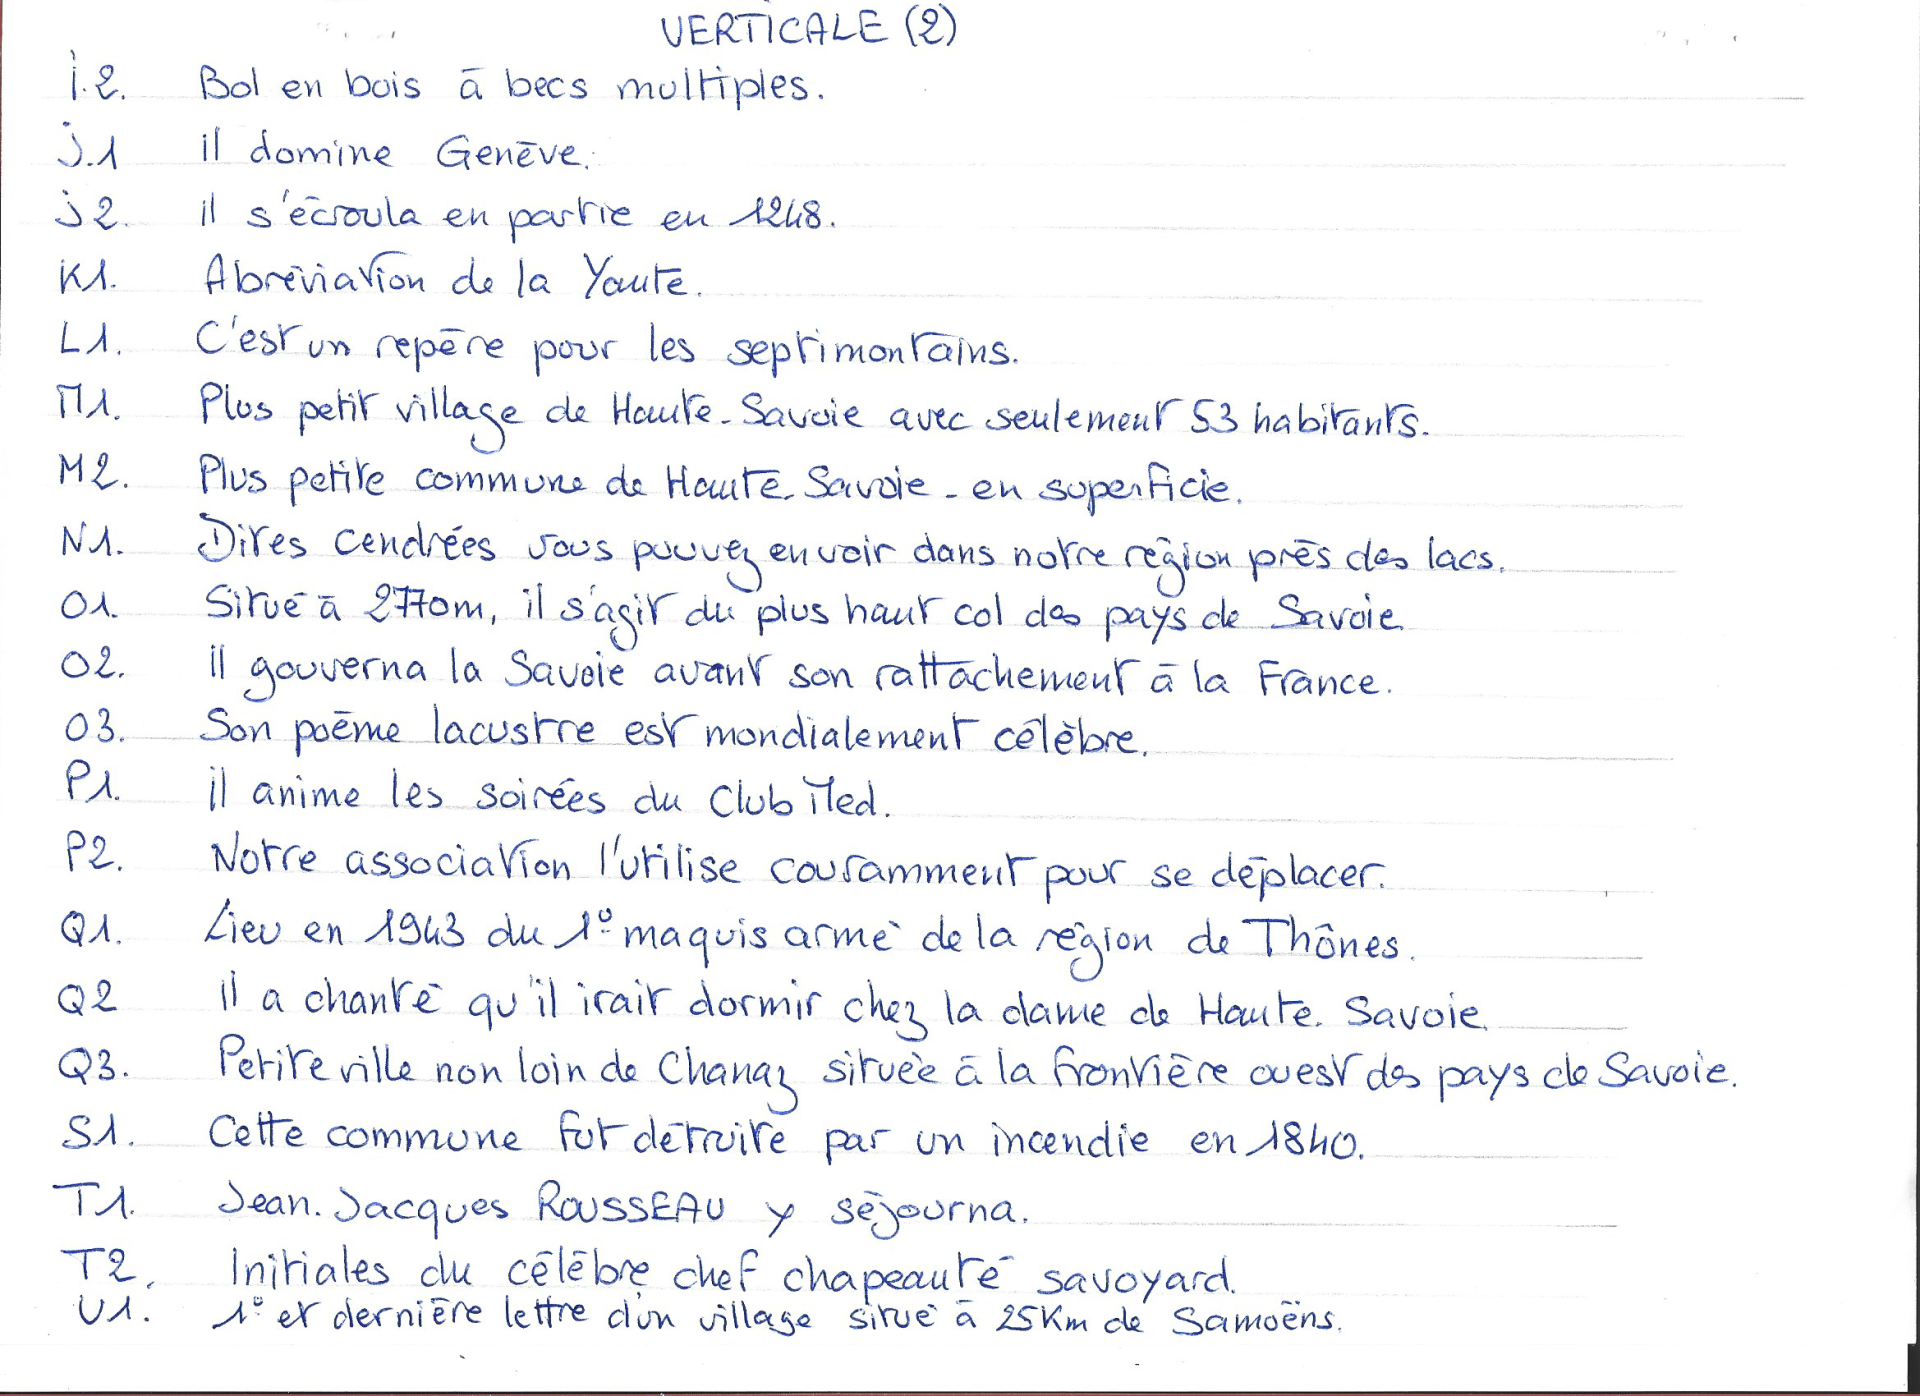 VERTICALE (2)
i.2. Bol en bois à becs multiples.
J.1 il domine Genève.
J2. il s'écroula en partie en 1248.
K1. Abréviation de la Yaute.
L1. C'est un repère pour les septimontains.
M1. Plus petit village de Haute-Savoie avec seulement 53 habitants.
M2. Plus petite commune de Haute-Savoie - en superficie.
N1. Dites cendrées vous pouvez en voir dans notre région près des lacs.
O1. Situé à 2770m, il s'agit du plus haut col des pays de Savoie
O2. il gouverna la Savoie avant son rattachement à la France.
O3. Son poème lacustre est mondialement célèbre.
P1. il anime les soirées du Club Med.
P2. Notre association l'utilise couramment pour se déplacer.
Q1. Lieu en 1943 du 1° maquis armé de la région de Thônes.
Q2 il a chanté qu'il irait dormir chez la dame de Haute. Savoie.
Q3. Petite ville non loin de Chanaz située à la frontière ouest des pays de Savoie.
S1. Cette commune fut détruite par un incendie en 1840.
T1. Jean. Jacques ROUSSEAU y séjourna.
T2. Initiales du célèbre chef chapeauté savoyard.
U1. 1° et dernière lettre d'un village situé à 25Km de Samoëns.